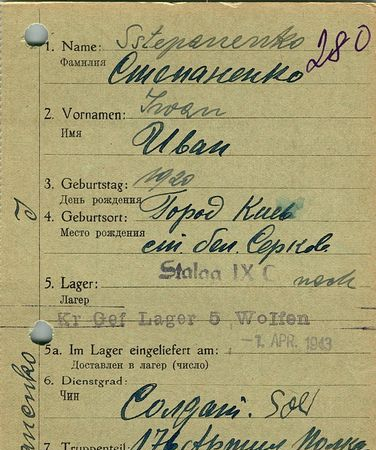 280
1. Name: Sstepanenko
Фамилия Степаненко
2. Vornamen: Iwan
Имя Иван
3. Geburtstag: 1920
День рождения
4. Geburtsort: Город Киев
Место рождения ст бел. Серков
5. Lager: Stalag IX C nach
Лагер
Kr Gef Lager 5 Wolfen
-1. APR. 1943
5a. Im Lager eingeliefert am:
Доставлен в лагер (число)
6. Dienstgrad:
Чин Солдат. Sol
7. Truppenteil: Полка
I
anenko